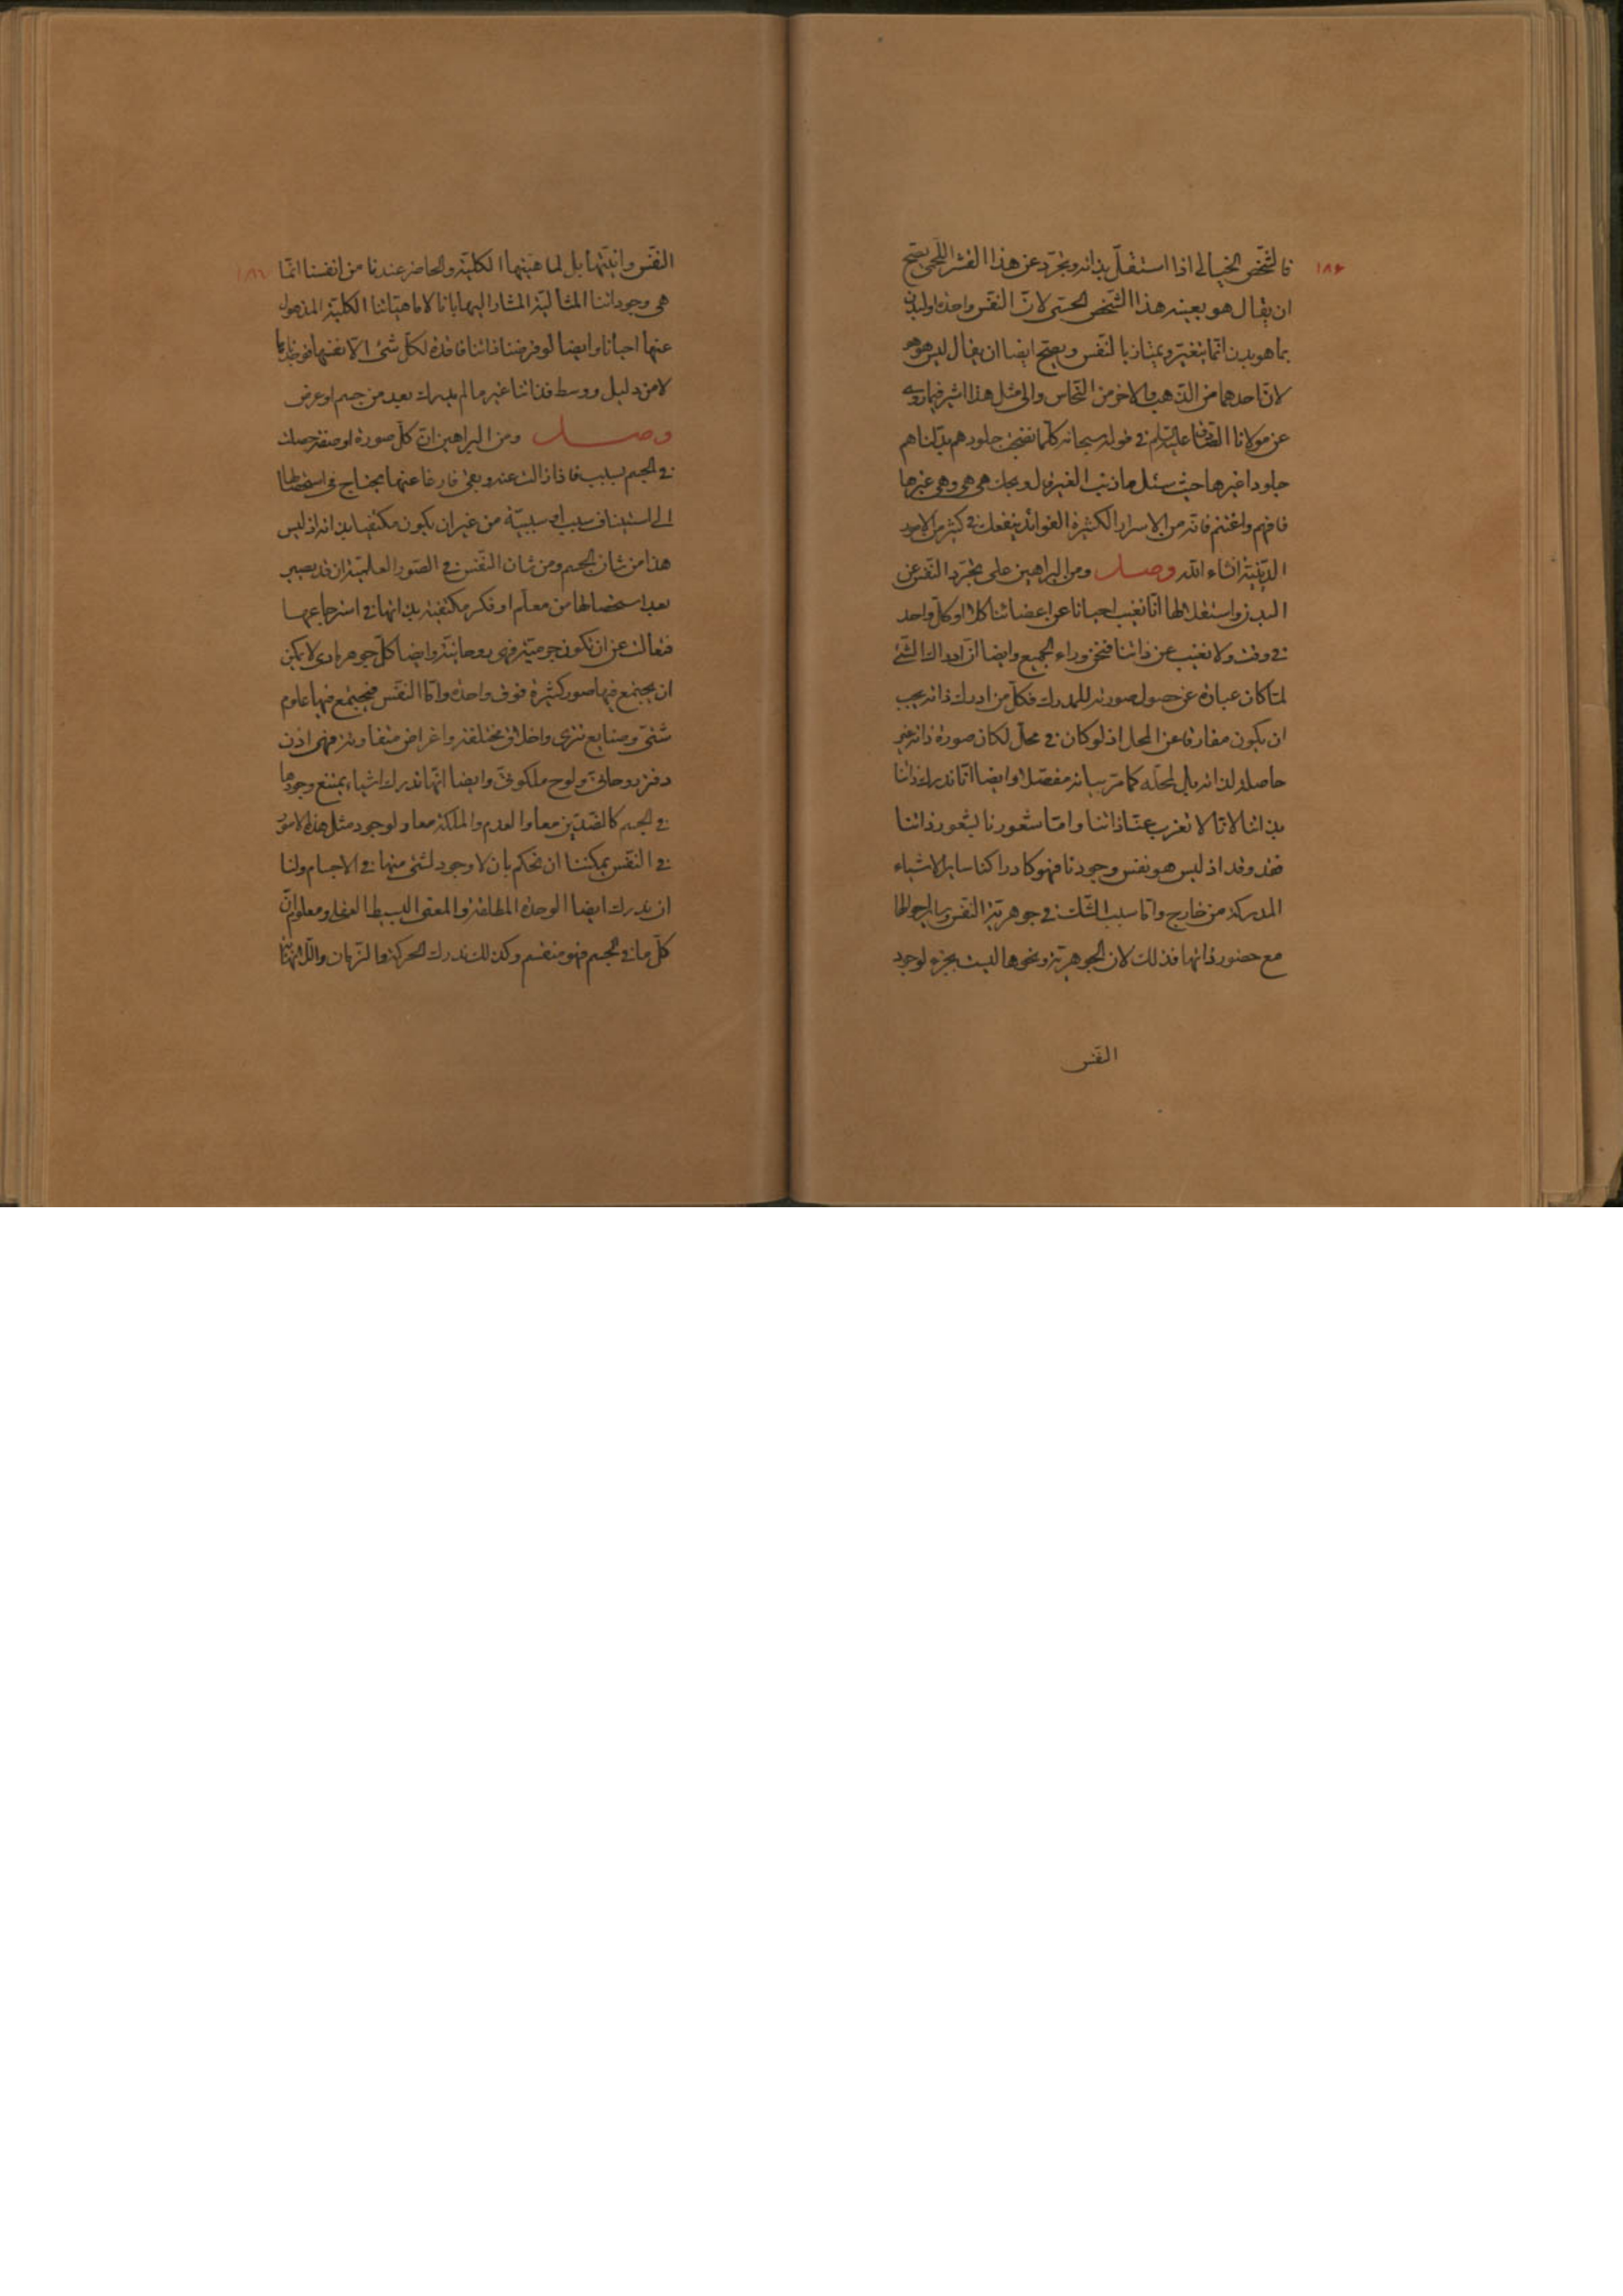 ١٨٤
فالشخص الخيالى اذا استقلّ بذاته وتجرّد عن هذا القشر اللحمى يصحّ
ان يقال هو بعينه هذا الشّخص الحسّى لانّ النّفس واحدة والبدن
بما هو بدن انّما يتغيّر ويمتاز بالنّفس ويصحّ ايضا ان يقال ليس هو هو
لانّ احدهما من الذّهب والاخر من النّحاس والى مثل هذا اشير فيما روى
عن مولانا الصّادق عليه السلم فى قوله سبحانه كلّما نضجت جلودهم بدّلناهم
جلودا غيرها حيث سئل ما ذنب الغير قال ويحك هى هى وهى غيرها
فافهم واغتنم فانّه من الاسرار الكثيرة الفوائد ينفعك فى كثير من الامور
الدّينيّة انشاء الله وصل ومن البراهين على تجرّد النّفس عن
البدن واستقلالها انّا نغيب احيانا عن اعضائنا كلا او كلّ واحد
فى وقت ولا نغيب عن ذاتنا فنحن وراء الجميع وايضا انّ ادراك الشّئ
لمّا كان عبارة عن حصول صورته للمدرك فكلّ من ادرك ذاته يجب
ان يكون مفارقا عن المحل اذ لو كان فى محلّ لكان صورة ذاته غير
حاصلة لذاته بل لمحلّه كما مرّ بيانه مفصّلا وايضا انّا ندرك ذاتنا
بذاتنا لانّا لا نعزب عنّا ذاتنا وامّا شعورنا بشعور ذاتنا
فقد وقد اذ ليس هو نفس وجودنا فهو كادراكنا ساير الاشياء
المدركة من خارج وامّا سبب الشّك فى جوهريّة النّفس وساير احوالها
مع حضور ذاتها فذلك لان الجوهريّة ونحوها ليست بجزء لوجود
النّفس
النّفس وانيّتها بل لماهيّتها الكليّة والحاضر عندنا من انفسنا انّما
هى وجوداتنا المشار اليها بانا لا ماهيّاتنا الكليّة المذهول
عنها احيانا وايضا لو فرضنا ذاتنا فاقدة لكلّ شئ الا نفسها فوجدنا
لا من دليل ووسط فذاتنا غير ما لم يدرك بعد من جسم او عرض
وصل ومن البراهين انّ كلّ صورة او صفة حصلت
فى الجسم بسبب فاذا زالت عنه وبقى فارغا عنها يحتاج فى استحضارها
الى استيناف سبب او سببيّة من غير ان يكون مكتفيا بذاته اذ ليس
هذا من شان الجسم ومن شان النّفس فى الصّور العلميّة ان قد يصير
بعد استحضارها من معلّم او فكر مكتفية بذاتها فى استرجاعها
فتعالت عن ان تكون جرميّة فهى روحانيّة وايضا كلّ جوهر مادى لا يمكن
ان يجتمع فيها صور كثيرة فوق واحدة وامّا النّفس فيجتمع فيها علوم
شتّى وصنايع تترى واخلاق مختلفة واغراض متفاوتة فهى اذن
دفتر روحانىّ ولوح ملكوتىّ وايضا انّها ندرك اشياء يمتنع وجودها
فى الجسم كالضّدّين معا والعدم والملكة معا ولوجود مثل هذه الامور
فى النّفس يمكننا ان نحكم بان لا وجود لشئ منها فى الاجسام ولنا
ان ندرك ايضا الوحدة المطلقة والمعنى البسيط العقلى ومعلوم انّ
كلّ ما فى الجسم فهو منقسم وكذلك ندرك الحركة والزّمان واللّا نهاية